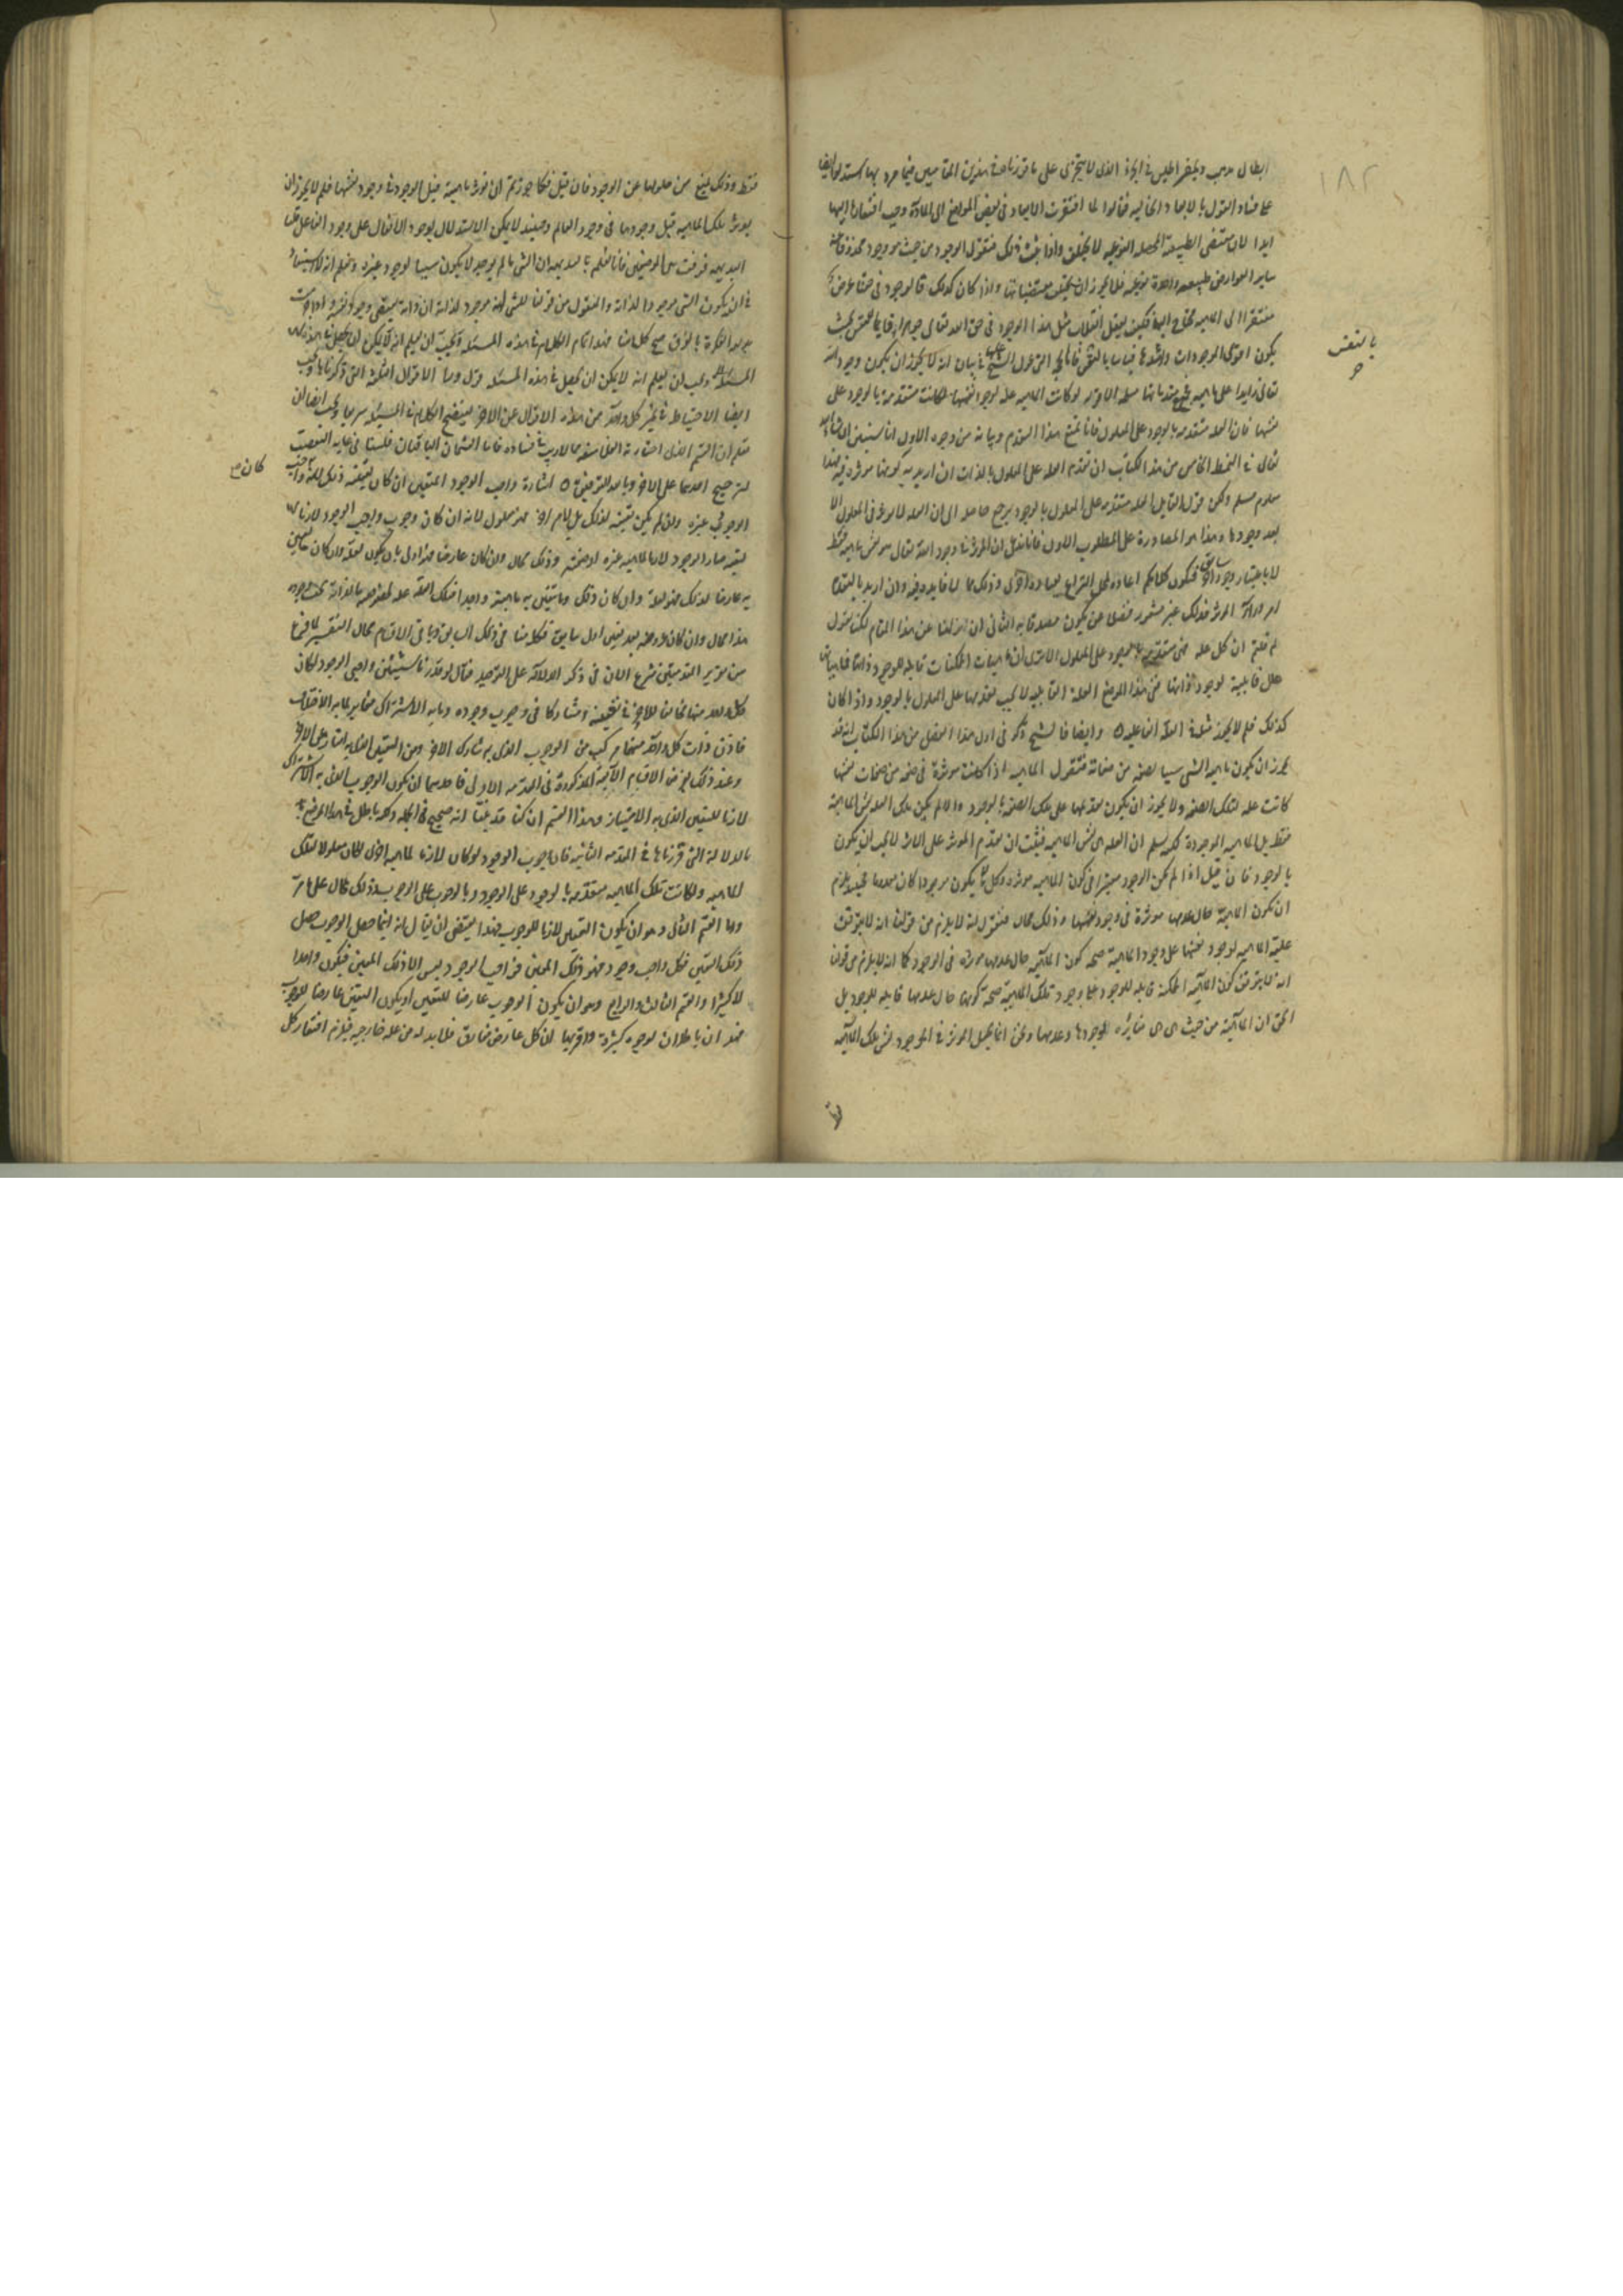 ١٨٢
ابطال مذهب ديمقراطيس فى الجزء الذى لا يتجزى على ما قررناه فى هذين المقامين
على فساد القول بالابعاد الخالية فقالوا لما افتقرت الابعاد فى بعض المواضع الى المادة وجب افتقارها اليها
ابدا لان مقتضى الطبيعة المحصلة النوعية لا يختلف واذا ثبت ذلك فنقول الوجود من حيث هو وجود
ساير العوارض طبيعة واحدة نوعية فلا يجوز ان يختلف مقتضياتها واذا كان كذلك فالوجود فى حقنا عرض
مفتقرا الى الماهية محتاج اليها فكيف يعقل انقلاب مثل هذا الوجود فى حق الله تعالى جوهرا قايما بنفسه بحيث
بالنفس
يكون اقوى الموجودات واشدها قياما بالنفس الشيخ فى بيان انه لا يجوز ان يكون وجود الله
تعالى زايدا على ماهيته لو كانت الماهية علة لوجود نفسها لكانت متقدمة بالوجود على
نفسها فان العلة متقدمة بالوجود على المعلول فانا نمنع هذا التقدم وبيانه من وجوه الاول انا سنبين ان شاء الله
تعالى فى النمط الخامس من هذا الكتاب ان تقدم العلة على المعلول بالذات ان اريد به كونها موثرة فيه فهذا
معلوم مسلم ولكن قول القايل العلة متقدمة على المعلول بالوجود يرجع حاصله الى ان العلة لا توثر فى المعلول الا
بعد وجودها وهذا هو المصادرة على المطلوب الاول فانا نقول ان الموثر فى وجود الله تعالى هو نفس ماهيته فقط
لا باعتبار وجود سابق فيكون كلامكم اعادة لمحل النزاع بعبارة اخرى وذلك مما لا فايدة فيه وان اريد بالتقدم
امر وراء الموثرية فذلك غير متصور فضلا عن ان يكون مصدقا به الثانى ان نزلنا عن هذا المقام لكنا نقول
لم قلتم ان كل علة فهى متقدمة بالوجود على المعلول الا ترى ان ماهيات الممكنات قابلة للوجود
علل قابلية لوجود ذواتها ففى هذا الموضع العلة القابلية لا يجب تقدمها على المعلول بالوجود واذا كان
كذلك فلم لا يجوز مثله فى العلة الفاعلية وايضا فالشيخ ذكر فى اول هذا الفصل من هذا الكتاب انه قد
يجوز ان يكون ماهية الشى سببا لصفة من صفاته فنقول الماهية اذا كانت موثرة فى صفة من صفات نفسها
كانت علة لتلك الصفة ولا يجوز ان يكون تقدمها على تلك الصفة بالوجود والا لم يكن تلك العلة نفس الماهية
فقط بل الماهية الموجودة لكنه سلم ان العلة هى نفس الماهية فثبت ان تقدم الموثر على الاثر لا يجب ان يكون
بالوجود فان قيل اذا لم يكن الوجود معتبرا فى كون الماهية موثرة وكل ما لا يكون موجودا كان معدوما فحينئذ يلزم
ان تكون الماهية حال عدمها موثرة فى وجود نفسها وذلك محال فنقول انه لا يلزم من قولنا انه لا يتوقف
علية الماهية لوجود نفسها على وجود الماهية صحة كون الماهية حال عدمها موثرة فى الوجود كما انه لا يلزم من قولنا
انه لا يتوقف كون الماهية الممكنة قابلة للوجود على وجود تلك الماهية صحة كونها حال عدمها قابلة للوجود بل
الحق ان الماهية من حيث هى هى مغايرة لوجودها وعدمها ونحن انما نجعل الموثر فى الوجود نفس تلك الماهية
فقط وذلك يمنع من خلوها عن الوجود فان قيل فكما جوزتم ان توثر ماهيته قبل الوجود فى وجود نفسها فلم لا يجوز ان
يوثر تلك الماهية قبل وجودها فى وجود العالم وحينئذ لا يمكن الاستدلال بوجود الافعال على وجود الفاعل قلنا
البديهة فرقت بين الموضعين فانا نعلم بالبديهة ان الشى ما لم يوجد لا يكون سببا لوجود غيره ونعلم انه لا
فى ان يكون الشى موجودا لذاته والمعقول من قولنا للشى انه موجود لذاته ان ذاته تقتضى وجود نفسه
صح كل هذا فهذا تمام الكلام فى هذه المسئلة ويجب ان يعلم انه لا يمكن ان يجعل فى هذه
المسئلة ويجب ان يعلم انه لا يمكن ان يجعل فى هذه المسئلة قول وراء الاقوال الثلثة التى ذكرناها ويجب
ايضا الاحتياط فى تميز كل واحد من هذه الاقوال عن الاخر ليتضح الكلام فى المسئلة ويجب ايضا ان
تعلم ان القسم الذى اختارته الفلاسفة مما لا ريب فى فساده فاما القسمان الباقيان فلسنا فى غاية التعصب
لترجيح احدهما على الاخر وبالله التوفيق اشارة واجب الوجود المتعين ان كان تعينه ذلك لانه واجب
كان صح
الوجود غيره وان لم يكن تعينه لذلك بل لامر اخر فهو معلول لانه ان كان وجوب واجب الوجود لازما
لتعينه صار الوجود لازما لماهية غيره او صفته وذلك محال وان كان عارضا فهو اولى بان يكون لعلة وان كان ما تعين
به عارضا لذلك فهو لعلة وان كان ذلك وما تتعين به ماهيته واحدا فتلك العلة علة لخصوصية ما لذاته يجب وجوده
هذا محال وان كان عروضه بعد تعين اول سابق فكلامنا فى ذلك السابق وباقى الاقسام محال التفسير لما فرغ
من تقرير المقدمتين شرع الان فى ذكر الدلالة على التوحيد فقال لو قدرنا شيئين واجبى الوجود لكان
كل واحد منهما مخالفا للاخر فى تعينه ومشاركا فى وجوب وجوده وما به الاشتراك مغاير لما به الاختلاف
فاذن ذات كل واحد منهما مركب من الوجوب الذى به شارك الاخر ومن التعين الذى به امتاز على الاخر
وعند ذلك يعرض الاقسام الاتية المذكورة فى المقدمة الاولى فاحدهما ان يكون الوجوب الذى به الاشتراك
لازما للتعين الذى به الامتياز وهذا القسم ان كنا قد بينا انه صحيح فى الجملة ولكنه باطل فى هذا الموضع
بالدلالة التى قررناها فى المقدمة الثانية فان وجوب الوجود لو كان لازما لماهية اخرى لكان معلولا لتلك
الماهية ولكانت تلك الماهية متقدمة بالوجود على الوجود وبالوجوب على الوجوب وذلك محال على ما مر
واما القسم الثانى وهو ان يكون التعين لازما للوجوب فهذا يقتضى ان يقال انه اينما حصل الوجوب حصل
ذلك التعين فكل واجب وجود فهو ذلك المعين فواجب الوجود ليس الا ذلك المعين فيكون واحدا
لا كثيرا والقسم الثالث والرابع وهو ان يكون الوجوب عارضا للتعين او يكون التعين عارضا للوجوب
فهذان باطلان لوجوه كثيرة واقربها ان كل عارض مفارق فلا بد له من علة خارجية فيلزم افتقار كل